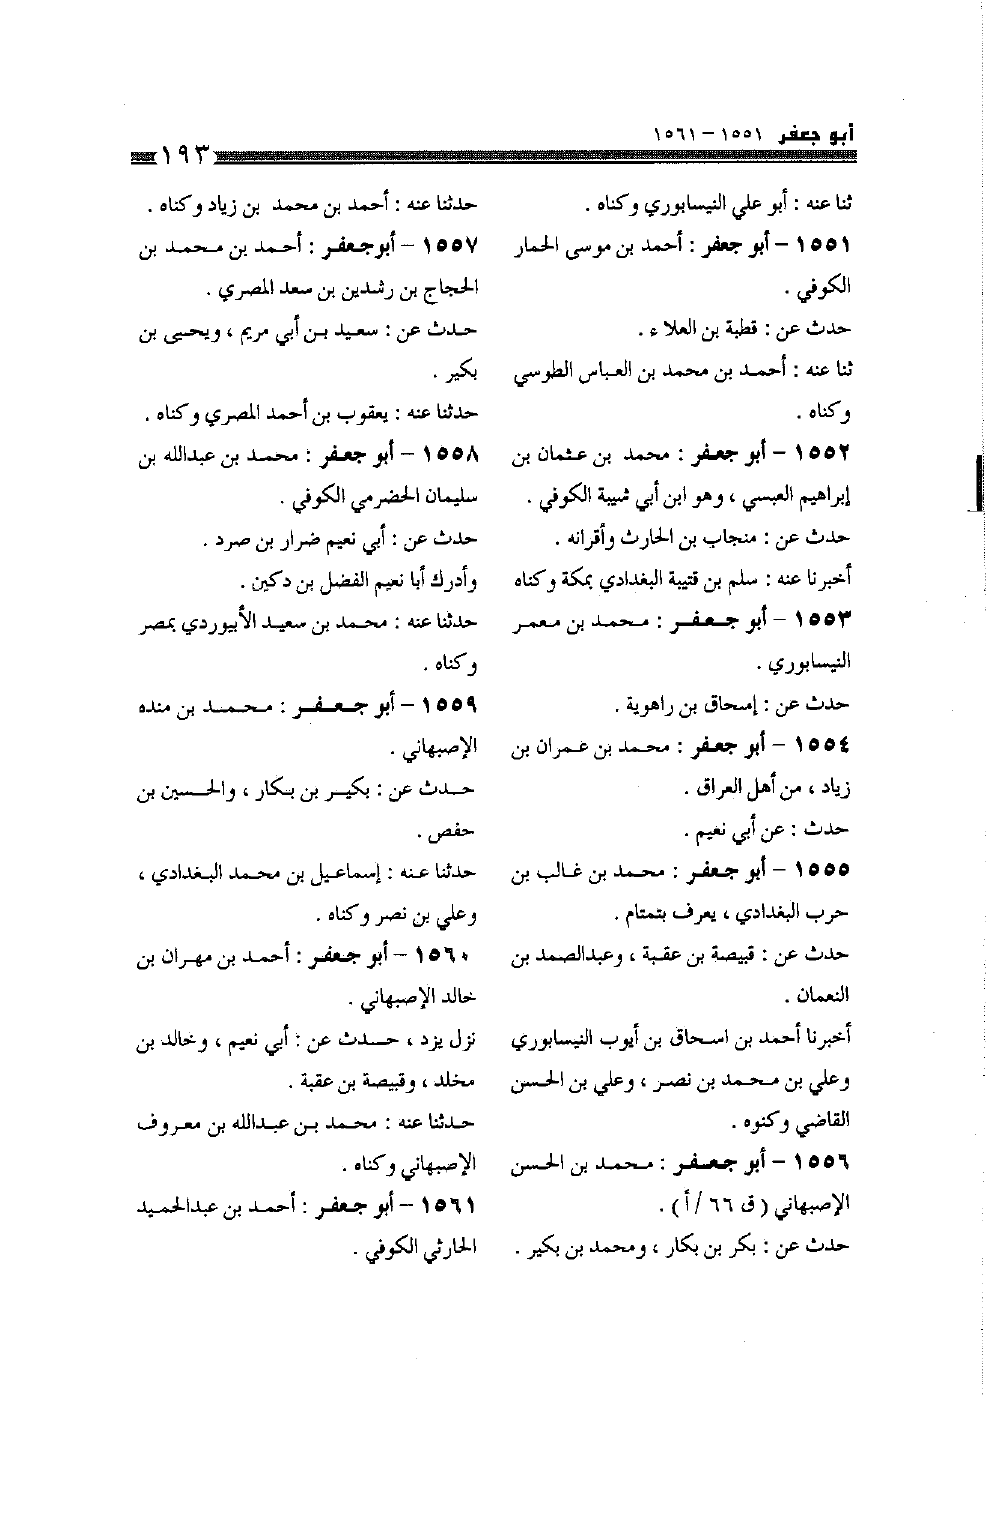 أبو جعفر ١٥٥١ – ١٥٦١
١٩٣
ثنا عنه : أبو علي النيسابوري وكناه .
١٥٥١ – أبو جعفر : أحمد بن موسى الحمار
الكوفي .
حدث عن : قطبة بن العلاء .
ثنا عنه : أحمد بن محمد بن العباس الطوسي
وكناه .
١٥٥٢ – أبو جعفر : محمد بن عثمان بن
إبراهيم العبسي ، وهو ابن أبي شيبة الكوفي .
حدث عن : منجاب بن الحارث وأقرانه .
أخبرنا عنه : سلم بن قتيبة البغدادي بمكة وكناه
١٥٥٣ – أبو جعفر : محمد بن معمر
النيسابوري .
حدث عن : إسحاق بن راهوية .
١٥٥٤ – أبو جعفر : محمد بن عمران بن
زياد ، من أهل العراق .
حدث : عن أبي نعيم .
١٥٥٥ – أبو جعفر : محمد بن غالب بن
حرب البغدادي ، يعرف بتمتام .
حدث عن : قبيصة بن عقبة ، وعبدالصمد بن
النعمان .
أخبرنا أحمد بن اسحاق بن أيوب النيسابوري
وعلي بن محمد بن نصر ، وعلي بن الحسن
القاضي وكنوه .
١٥٥٦ – أبو جعفر : محمد بن الحسن
الإصبهاني ( ق ٦٦ /أ ) .
حدث عن : بكر بن بكار ، ومحمد بن بكير .
حدثنا عنه : أحمد بن محمد بن زياد وكناه .
١٥٥٧ – أبو جعفر : أحمد بن محمد بن
الحجاج بن رشدين بن سعد المصري .
حدث عن : سعيد بن أبي مريم ، ويحيى بن
بكير .
حدثنا عنه : يعقوب بن أحمد المصري وكناه .
١٥٥٨ – أبو جعفر : محمد بن عبدالله بن
سليمان الحضرمي الكوفي .
حدث عن : أبي نعيم ضرار بن صرد .
وأدرك أبا نعيم الفضل بن دكين .
حدثنا عنه : محمد بن سعيد الأبيوردي بمصر
وكناه .
١٥٥٩ – أبو جعفر : محمد بن منده
الإصبهاني .
حدث عن : بكير بن بكار ، والحسين بن
حفص .
حدثنا عنه : إسماعيل بن محمد البغدادي ،
وعلي بن نصر وكناه .
١٥٦٠ – أبو جعفر : أحمد بن مهران بن
خالد الإصبهاني .
نزل يزد ، حدث عن : أبي نعيم ، وخالد بن
مخلد ، وقبيصة بن عقبة .
حدثنا عنه : محمد بن عبدالله بن معروف
الإصبهاني وكناه .
١٥٦١ – أبو جعفر : أحمد بن عبدالحميد
الحارثي الكوفي .